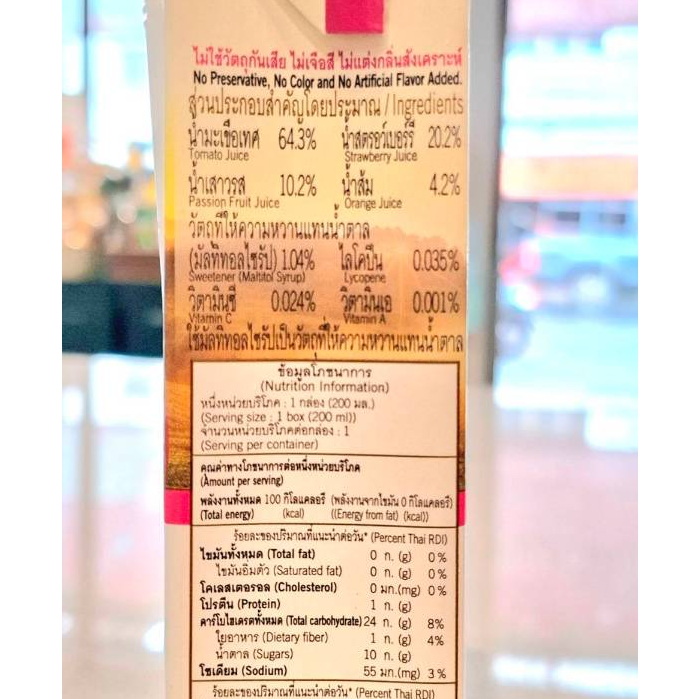 ไม่ใช้วัตถุกันเสีย ไม่เจือสี ไม่แต่งกลิ่นสังเคราะห์
No Preservative, No Color and No Artificial Flavor Added.
ส่วนประกอบสำคัญโดยประมาณ / Ingredients
น้ำมะเขือเทศ 64.3% น้ำสตรอว์เบอร์รี่ 20.2%
Tomato Juice Strawberry Juice
น้ำเสาวรส 10.2% น้ำส้ม 4.2%
Passion Fruit Juice Orange Juice
วัตถุที่ให้ความหวานแทนน้ำตาล
(มัลทิทอลไซรัป) 1.04% ไลโคปีน 0.035%
Sweetener (Maltitol Syrup) Lycopene
วิตามินซี 0.024% วิตามินเอ 0.001%
Vitamin C Vitamin A
ใช้มัลทิทอลไซรัปเป็นวัตถุที่ให้ความหวานแทนน้ำตาล
ข้อมูลโภชนาการ
(Nutrition Information)
หนึ่งหน่วยบริโภค : 1 กล่อง (200 มล.)
(Serving size : 1 box (200 ml))
จำนวนหน่วยบริโภคต่อกล่อง : 1
(Serving per container)
คุณค่าทางโภชนาการต่อหนึ่งหน่วยบริโภค
(Amount per serving)
พลังงานทั้งหมด 100 กิโลแคลอรี (พลังงานจากไขมัน 0 กิโลแคลอรี)
(Total energy) (kcal) ((Energy from fat) (kcal))
ร้อยละของปริมาณที่แนะนำต่อวัน* (Percent Thai RDI)
ไขมันทั้งหมด (Total fat) 0 ก. (g) 0%
ไขมันอิ่มตัว (Saturated fat) 0 ก. (g) 0%
โคเลสเตอรอล (Cholesterol) 0 มก.(mg) 0%
โปรตีน (Protein) 1 ก. (g)
คาร์โบไฮเดรตทั้งหมด (Total carbohydrate) 24 ก. (g) 8%
ใยอาหาร (Dietary fiber) 1 ก. (g) 4%
น้ำตาล (Sugars) 10 ก. (g)
โซเดียม (Sodium) 55 มก.(mg) 3%
ร้อยละของปริมาณที่แนะนำต่อวัน* (Percent Thai RDI)